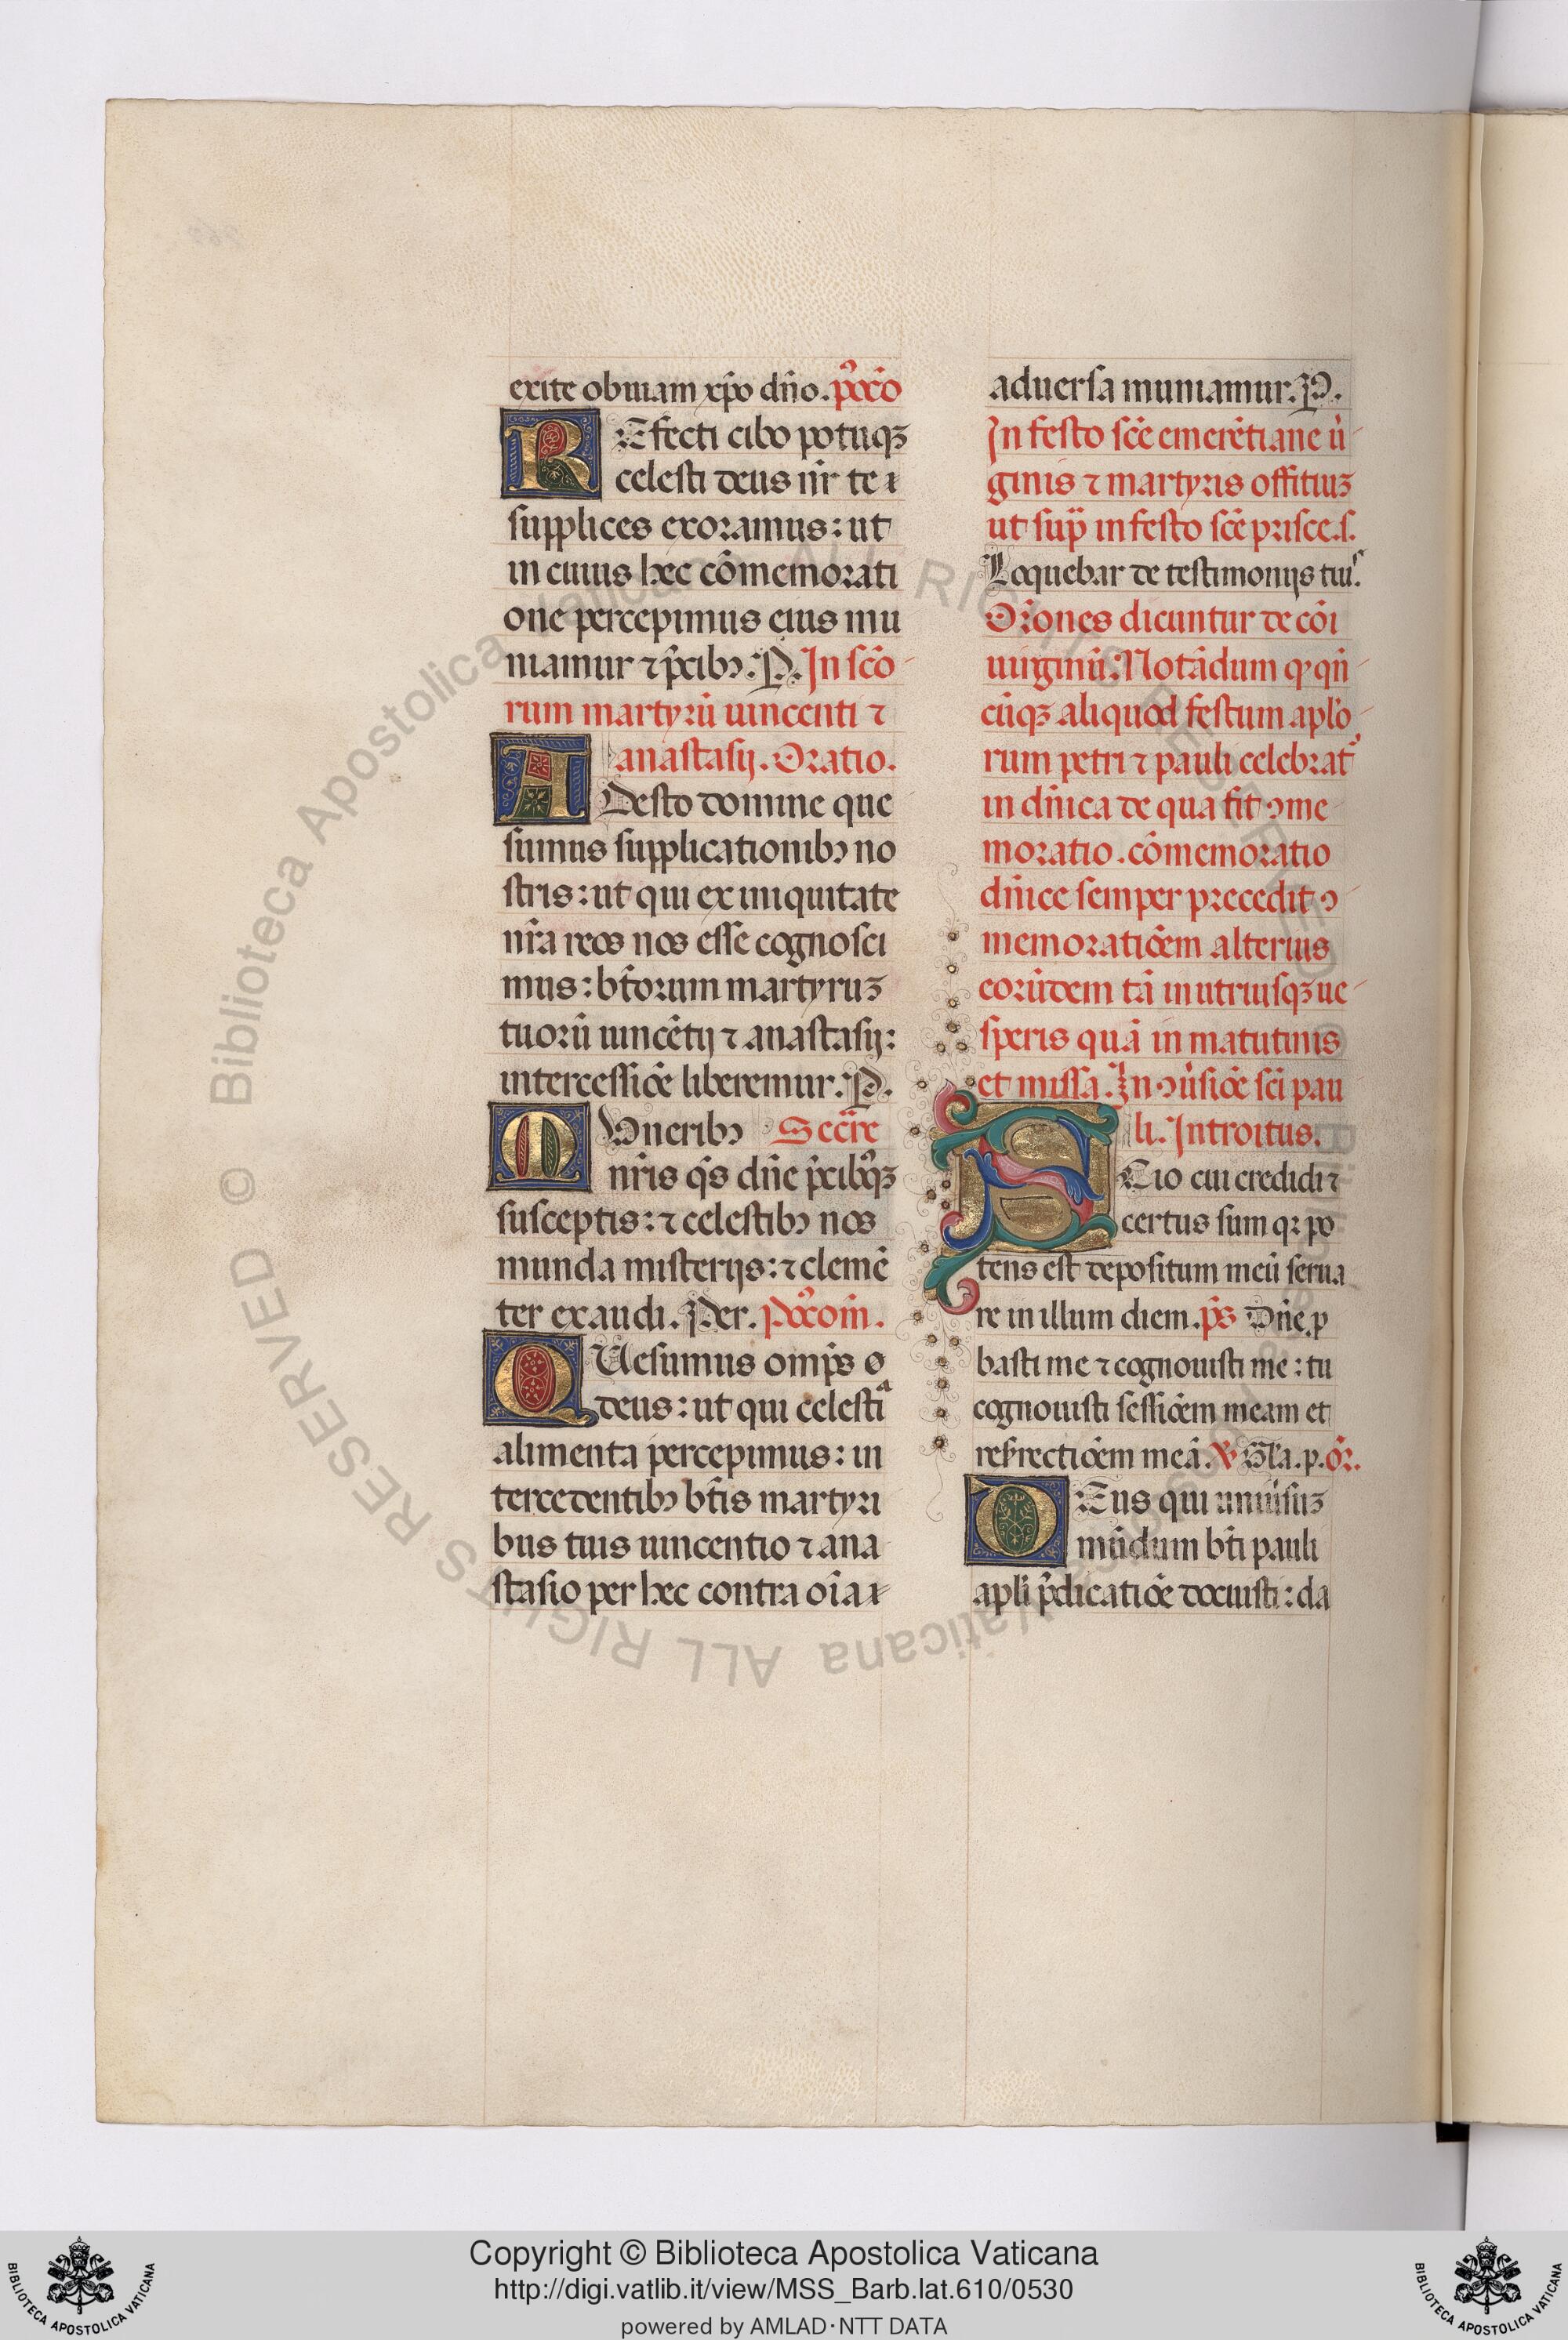 exite obuiam xp̄o dño. pꝰcō
REfecti cibo potuqꝫ
celesti deus nr̄ te
supplices exoramus: ut
in cuius hec cōmemorati
one percepimus eius mu
niamur ⁊ p̄cibꝰ. P. In scō
rum martyrū uincenti ⁊
anastasij. Oratio.
ADesto domine que
sumus supplicationibꝰ no
stris: ut qui ex iniquitate
nr̄a reos nos esse cognosci
mus: btōrum martyruꝫ
tuorū uincētij ⁊ anastasij:
intercessiōe liberemur. P.
MUneribꝰ Secre
nr̄is qs̄ dñe p̄cibꝰqꝫ
susceptis: ⁊ celestibꝰ nos
munda misterijs: ⁊ clemē
ter exaudi. Per. Pꝰcom̄.
QUesumus omp̄s
deus: ut qui celestiᵃ
alimenta percepimus: in
tercedentibꝰ btīs martyri
bus tuis uincentio ⁊ ana
stasio per hec contra oīa
aduersa muniamur. P.
In festo scē emerētiane ū
ginis ⁊ martyris offitiuꝫ
ut sup̄ in festo scē prisce. s.
Loquebar de testimonijs tui.
Orōnes dicuntur de cōi
uirginū. Notādum qꝫ qñ
cūqꝫ aliquod festum aplō
rum petri ⁊ pauli celebrat᷑
in dñica de qua fit ꝯme
moratio. cōmemoratio
dñice semper precedit ꝯ
memoratiōem alterius
eorūdem tā in utriusqꝫ ue
speris quā in matutinis
et missa. In ꝯūsiōe sci pau
li. Introitus.
SCio cui credidi ⁊
certus sum qꝛ po
tens est depositum meū serua
re in illum diem. ps̄ Dñe p
basti me ⁊ cognouisti me: tu
cognouisti sessiōem meam et
resrectiōem meā. ℣ Glā. p. Or̄.
DEus qui uniūsuꝫ
mūdum bti pauli
apli p̄dicatiōe docuisti: da
© Biblioteca Apostolica Vaticana ALL RIGHTS RESERVED
Copyright © Biblioteca Apostolica Vaticana
http://digi.vatlib.it/view/MSS_Barb.lat.610/0530
powered by AMLAD·NTT DATA
BIBLIOTECA APOSTOLICA VATICANA
BIBLIOTECA APOSTOLICA VATICANA